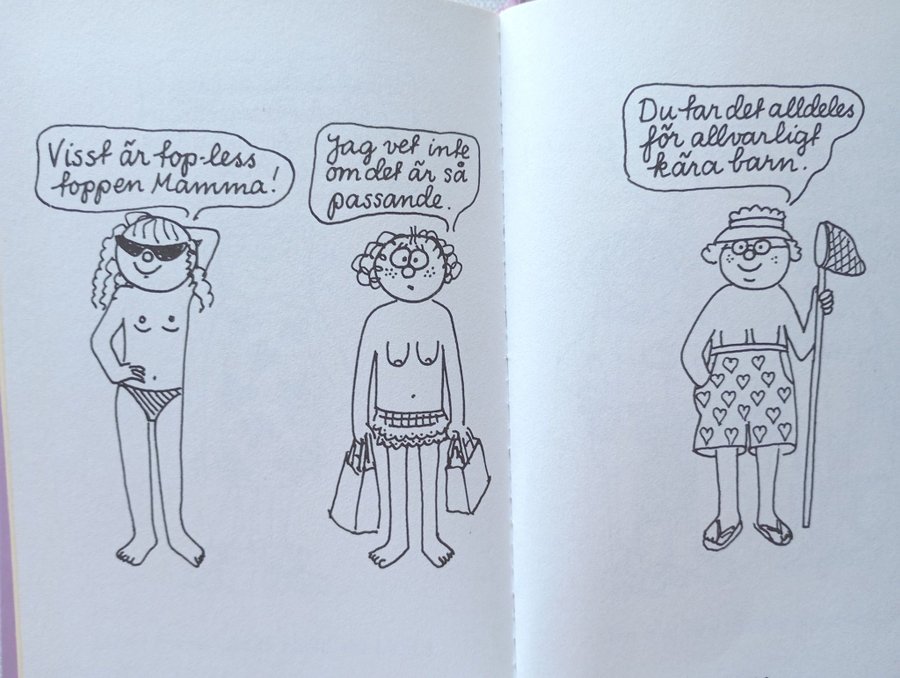 Visst är top-less
toppen Mamma!
Jag vet inte
om det är så
passande.
Du tar det alldeles
för allvarligt
kära barn.